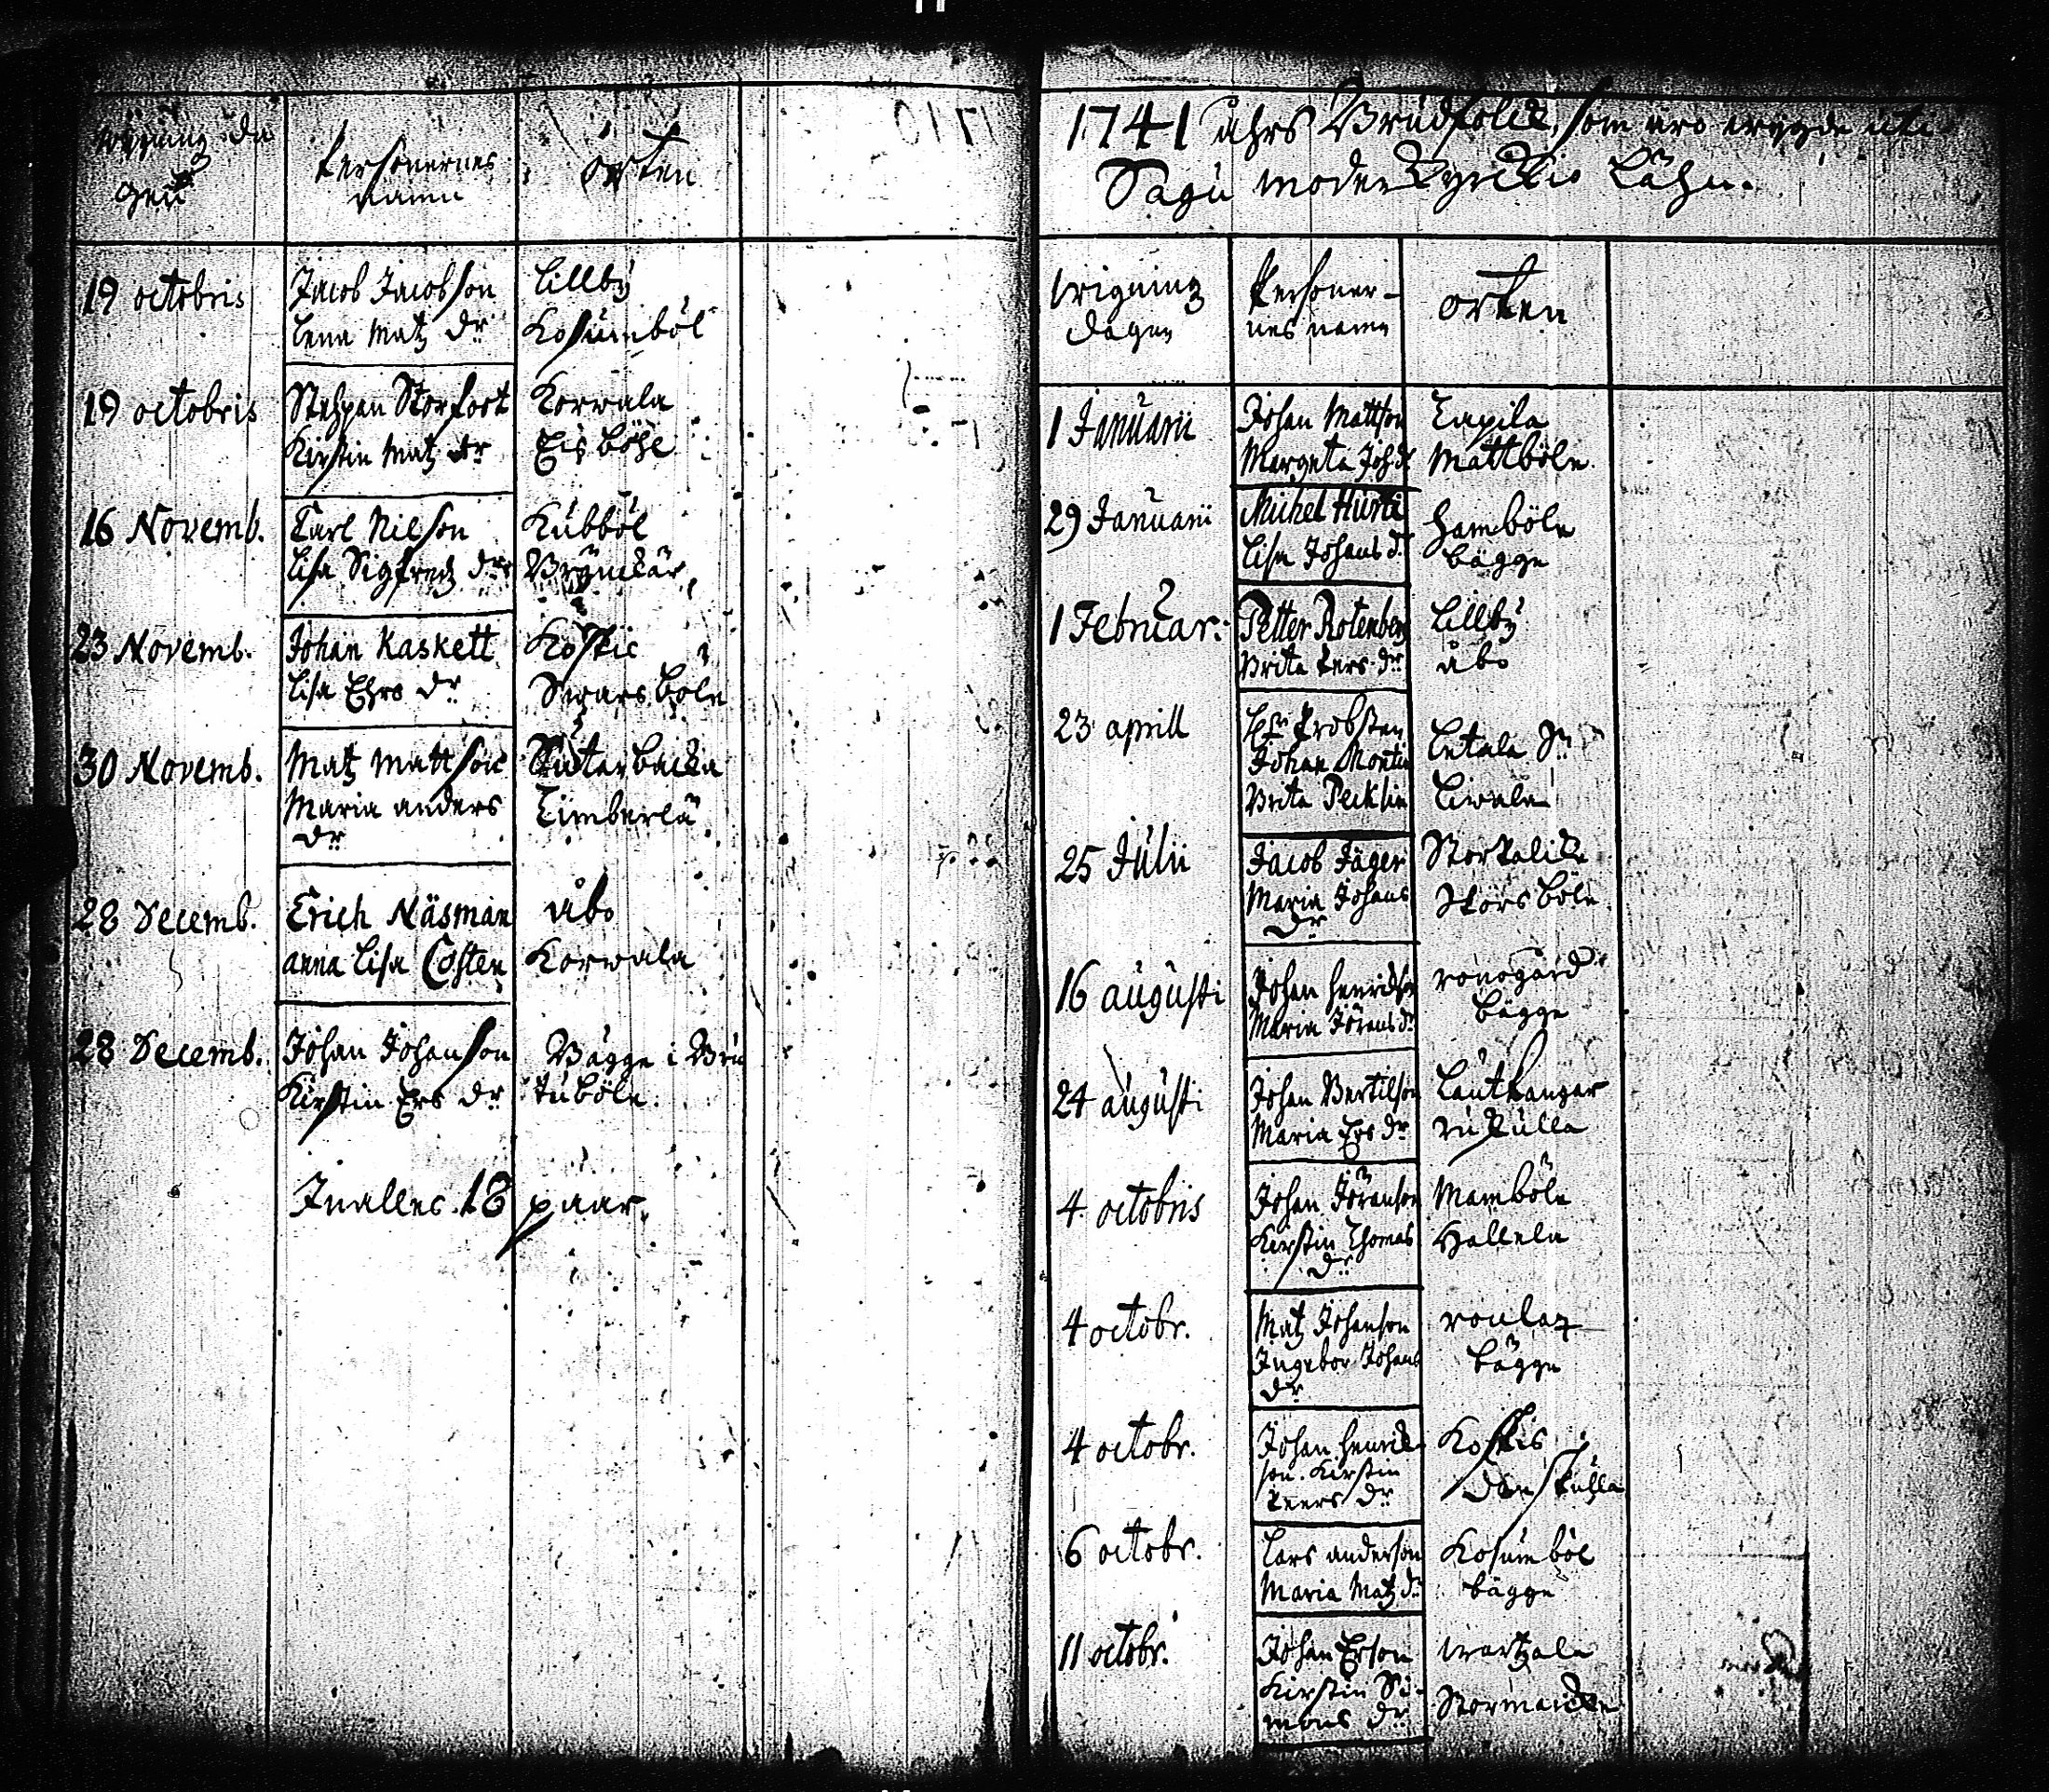 Wigning da
gen
Personernes
namn
orten
19 octobris
Jacob Jacobsson
Lena Matz dr
Lillby
Kosumböl
19 octobris
Stehpan Storfoot
Kirstin Matz dr
Korwala
Eisböhle
16 Novemb.
Carl Nilson
Lisa Sigfredz dr
Kubböl
23 Novemb.
Johan Kaskett
Lisa Ehrs dr
Koskis
Swarsböle
30 Novemb.
Matz Mattson
Maria anders
dr
Säterbacka
Timberla
28 Decemb.
Erich Näsman
anna Lisa Costen
åbo
Korwala
28 Decemb.
Johan Johansson
Kirstin Ers dr
Bägge i Bru
tuböle.
Inalles 18 paar.
1741 åhrs Brudfolck, som äro wigde uti
Sagu moder Kyrckio Sochn.
Wigning
dagen
Personer-
nes namn
orten
1 Januarii
Johan Mattson
Margeta Joh. dr
Tapila
Mattböle
29 Januarii
Michel Hurti
Lisa Johans dr
Hamböle
bägge
1 Februar.
Petter Rotenberg
Brita Pers dr
Lillby
åbo
23 aprill
Hr Probsten
Johan Montin
Brita Pecklin
Letala Sn
Liwala
25 Julii
Jacob Jäger
Maria Johans
dr
Storsböle
16 augusti
Johan Henrichson
Maria Jörans dr
ronogård
bägge
24 augusti
Johan Bertilson
Maria Ers dr
Lautkangar
4 octobris
Johan Jöranson
Kirstin Thomas
dr
Mamböle
Hallela
4 octobr.
Matz Johanson
Ingebor Johans
dr
bägge
4 octobr.
Johan Henrick-
son. Kirstin
Peers dr
Koskis
6 octobr.
Lars anderson
Maria Matz dr
Kosumböl
bägge
11 octobr.
Johan Erson
Kirstin Si-
mons dr